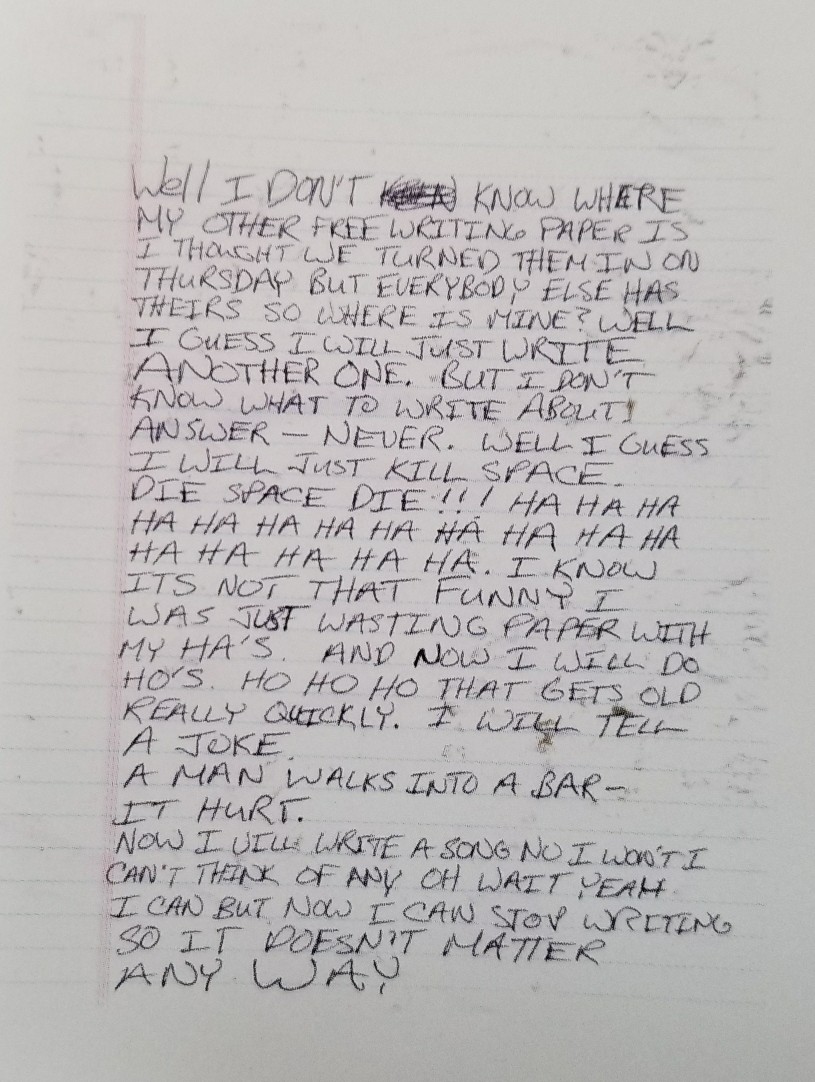 Well I DON'T KNOW WHERE
MY OTHER FREE WRITING PAPER IS
I THOUGHT WE TURNED THEM IN ON
THURSDAY BUT EVERYBODY ELSE HAS
THEIRS SO WHERE IS MINE? WELL
I GUESS I WILL JUST WRITE
ANOTHER ONE. BUT I DON'T
KNOW WHAT TO WRITE ABOUT!
ANSWER - NEVER. WELL I GUESS
I WILL JUST KILL SPACE.
DIE SPACE DIE!!! HA HA HA
HA HA HA HA HA HA HA HA HA
HA HA HA HA HA. I KNOW
ITS NOT THAT FUNNY I
WAS JUST WASTING PAPER WITH
MY HA'S. AND NOW I WILL DO
HO'S. HO HO HO THAT GETS OLD
REALLY QUICKLY. I WILL TELL
A JOKE.
A MAN WALKS INTO A BAR-
IT HURT.
NOW I WILL WRITE A SONG NO I WON'T I
CAN'T THINK OF ANY OH WAIT YEAH
I CAN BUT NOW I CAN STOP WRITING
SO IT DOESN'T MATTER
ANY WAY